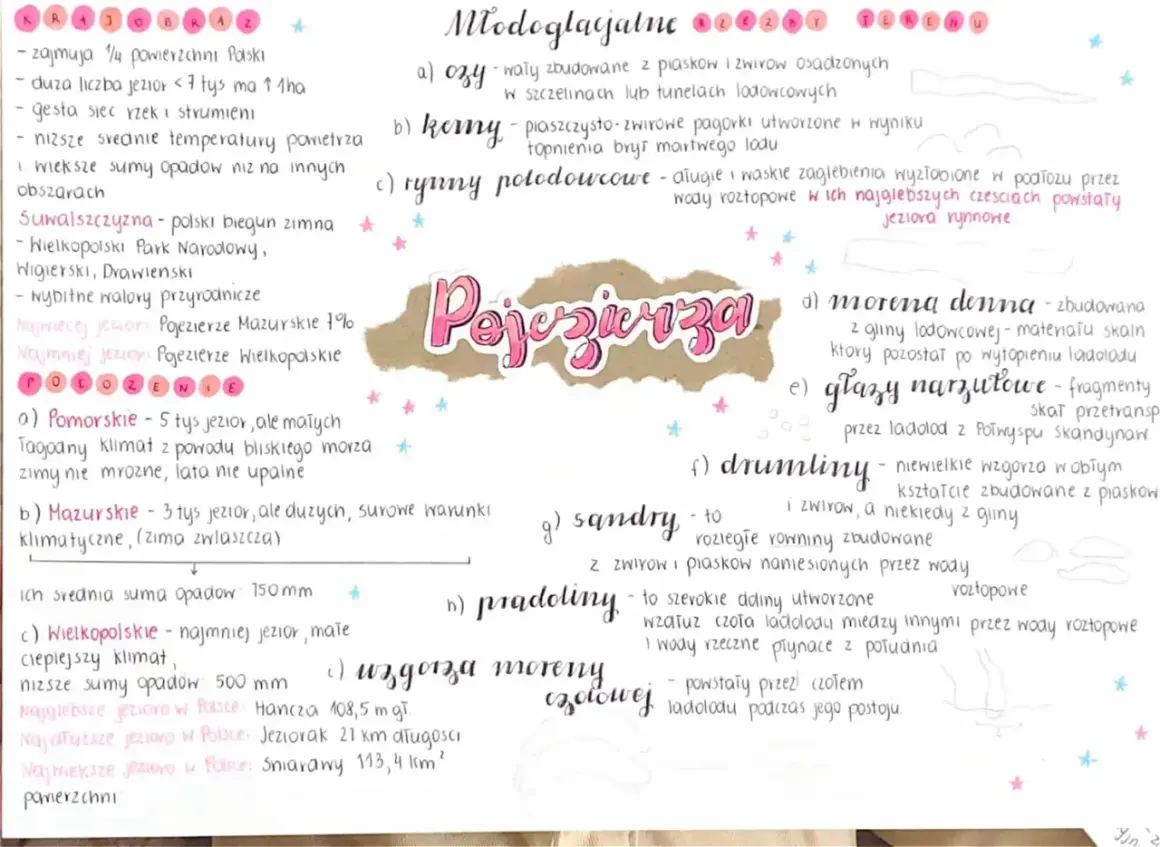 KRAJOBRAZ
- zajmują 1/4 powierzchni Polski
- duza liczba jezior <7 tys ma ↑ 1ha
- gesta siec rzek i strumieni
- nizsze srednie temperatury powietrza
i wieksze sumy opadow niz na innych
obszarach
Suwalszczyzna - polski biegun zimna
- Wielkopolski Park Narodowy,
Wigierski, Drawienski
- wybitne walory przyrodnicze
Najwiecej jezior: Pojezierze Mazurskie 7%
Najmniej jezior: Pojezierze Wielkopolskie
POŁOZENIE
a) Pomorskie - 5 tys jezior, ale małych
łagodny klimat z powodu bliskiego morza
zimy nie mrozne, lata nie upalne
b) Mazurskie - 3 tys jezior, ale duzych, surowe warunki
klimatyczne, (zima zwlaszcza)
ich srednia suma opadow 750mm
c) Wielkopolskie - najmniej jezior, małe
cieplejszy klimat,
nizsze sumy opadów 500 mm
Najglebsze jezioro w Polsce: Hancza 108,5 m gł.
Najdłuzsze jezioro w Polsce: Jeziorak 27 km długosci
Najwieksze jezioro w Polsce: Sniardwy 113,4 km²
powierzchni
Młodoglacjalne RZEZBY TERENU
a) ozy - wały zbudowane z piaskow i zwirow osadzonych
w szczelinach lub tunelach lodowcowych
b) kemy - piaszczysto-zwirowe pagorki utworzone w wyniku
topnienia brył martwego lodu
c) rynny polodowcowe - długie i waskie zaglebienia wyzłobione w podłozu przez
wody roztopowe w ich najglebszych czesciach powstały
jeziora rynnowe
Pojezierza
d) morena denna - zbudowana
z gliny lodowcowej - materiału skaln
ktory pozostał po wytopieniu ladolodu
e) głazy narzutowe - fragmenty
skał przetransp
przez ladolod z Połwyspu Skandynaw
f) drumliny - niewielkie wzgorza w obłym
kształcie zbudowane z piaskow
i zwirow, a niekiedy z gliny
g) sandry - to
rozległe rowniny zbudowane
z zwirow i piaskow naniesionych przez wody
roztopowe
h) pradoliny - to szerokie doliny utworzone
wzdłuz czoła ladolodu miedzy innymi przez wody roztopowe
i wody rzeczne płynace z południa
i) wzgorza moreny
czołowej - powstały przed czołem
ladolodu podczas jego postoju.